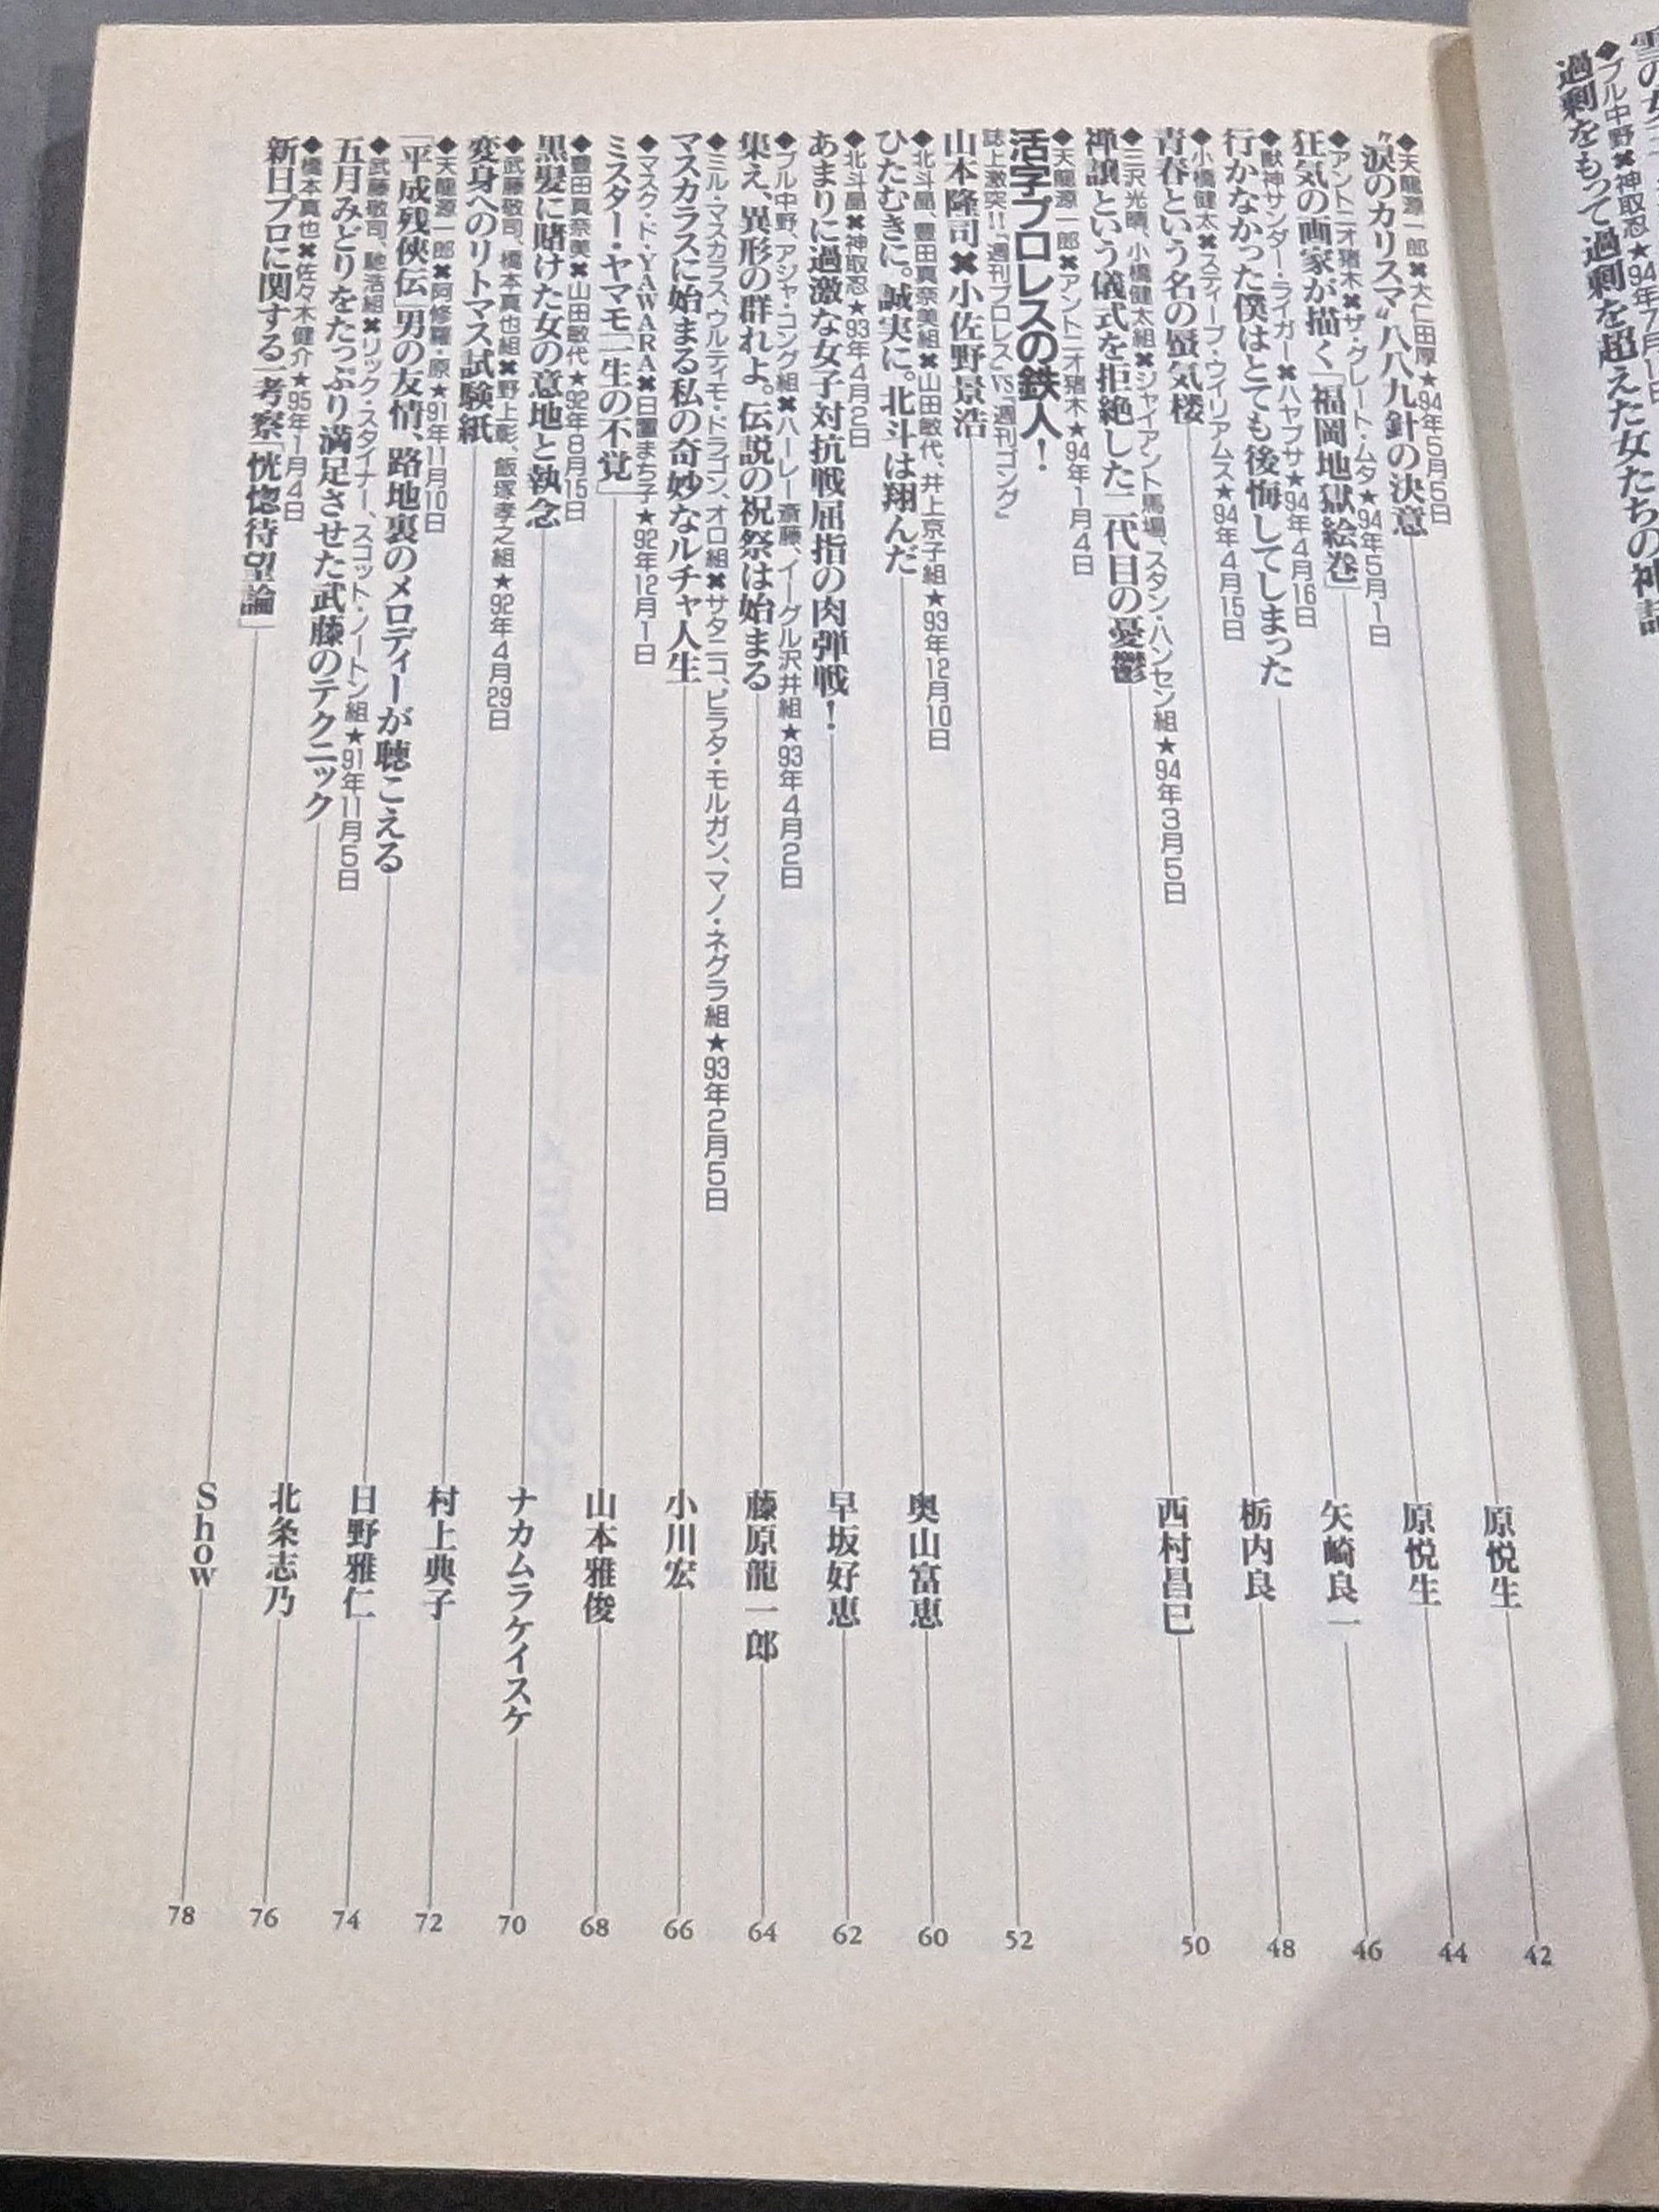 過剰をもって過剰を超えた女たちの神話
◆天龍源一郎✖大仁田厚★94年5月5日
“涙のカリスマ”八八九針の決意
原悦生
42
◆アントニオ猪木✖ザ・グレート・ムタ★94年5月1日
狂気の画家が描く「福岡地獄絵巻」
原悦生
44
◆獣神サンダー・ライガー✖ハヤブサ★94年4月16日
行かなかった僕はとても後悔してしまった
矢崎良一
46
◆小橋健太✖スティーブ・ウイリアムス★94年4月15日
青春という名の蜃気楼
栃内良
48
◆三沢光晴、小橋健太組✖ジャイアント馬場、スタン・ハンセン組★94年3月5日
禅譲という儀式を拒絶した二代目の憂鬱
西村昌巳
50
◆天龍源一郎✖アントニオ猪木★94年1月4日
活字プロレスの鉄人！
誌上激突!!「週刊プロレス」VS「週刊ゴング」
山本隆司✖小佐野景浩
52
◆北斗晶、豊田真奈美組✖山田敏代、井上京子組★93年12月10日
ひたむきに。誠実に。北斗は翔んだ
奥山富恵
60
◆北斗晶✖神取忍★93年4月2日
あまりに過激な女子対抗戦屈指の肉弾戦！
早坂好恵
62
◆ブル中野、アジャ・コング組✖ハーレー斎藤、イーグル沢井組★93年4月2日
集え、異形の群れよ。伝説の祝祭は始まる
藤原龍一郎
64
◆ミル・マスカラス、ウルティモ・ドラゴン、オロ組✖サタニコ、ピラタ・モルガン、マノ・ネグラ組★93年2月5日
マスカラスに始まる私の奇妙なルチャ人生
小川宏
66
◆マスク・ド・YAWARA✖日置まち子★92年12月1日
ミスター・ヤマモ「一生の不覚」
山本雅俊
68
◆豊田真奈美✖山田敏代★92年8月15日
黒髪に賭けた女の意地と執念
ナカムラケイスケ
70
◆武藤敬司、橋本真也組✖野上彰、飯塚孝之組★92年4月29日
変身へのリトマス試験紙
村上典子
72
◆天龍源一郎✖阿修羅・原★91年11月10日
「平成残侠伝」男の友情、路地裏のメロディーが聴こえる
日野雅仁
74
◆武藤敬司、馳浩組✖リック・スタイナー、スコット・ノートン組★91年11月5日
五月みどりをたっぷり満足させた武藤のテクニック
北条志乃
76
◆橋本真也✖佐々木健介★95年1月4日
新日プロに関する一考察「恍惚待望論」
Show
78